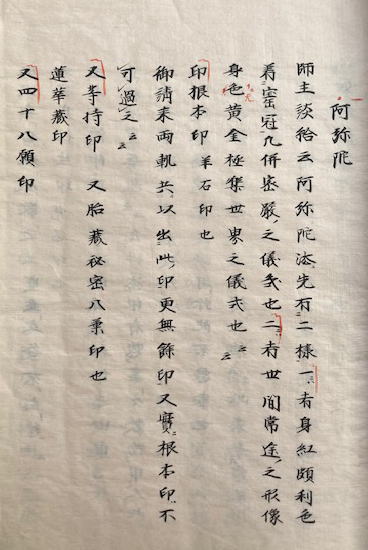 阿弥陀
師主談給云阿弥陀法先有二様一者身紅頗利色
着宝冠九併密嚴之儀式也二者世間常途之形像
身色黄金極集世界之儀式也云云
印根本印 羊石印也
御請来両軌共以出此印更無餘印又實根本印不
可過之云云
又等持印 又胎蔵秘密八葉印也
蓮華蔵印
又四十八願印